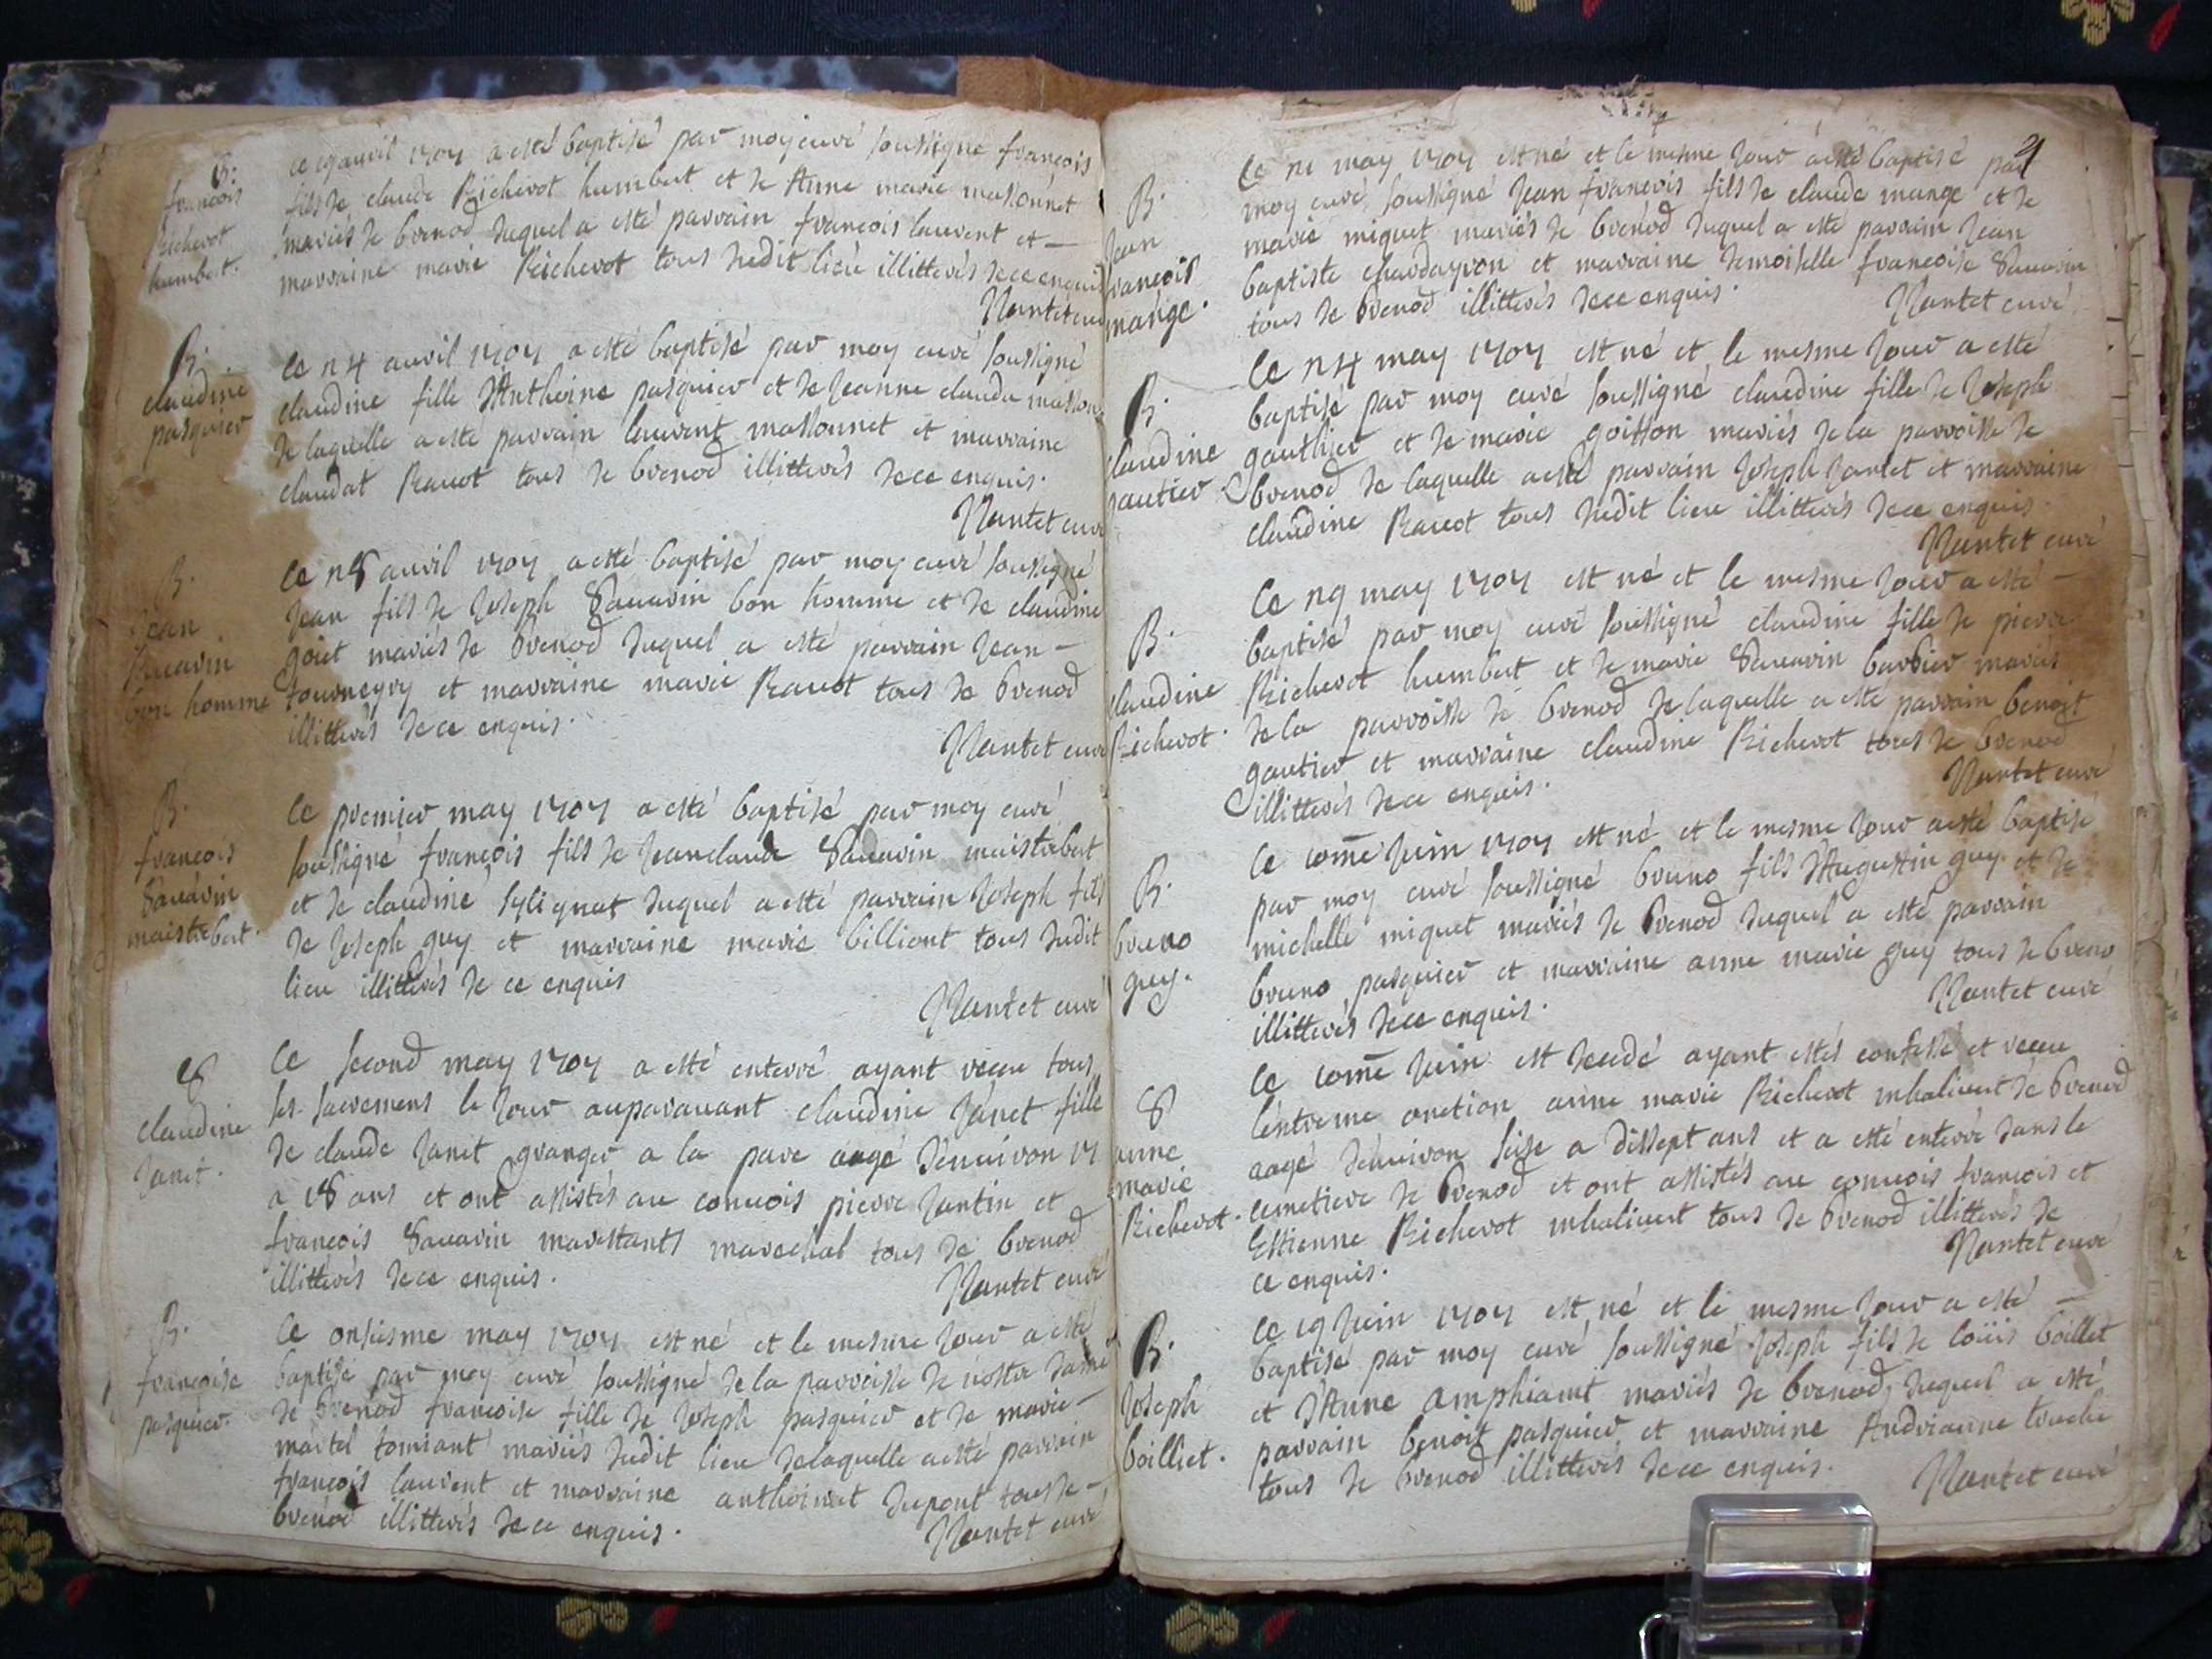 B.
françois
Richerot
humbert.
Ce 19 auril 1707 a esté baptisé par moy curé soussigné françois
fils de claude Richerot humbert et de Anne marie massonnet
mariés de brenod duquel a esté parrain françois laurent et
marraine marie Richerot tous dudit lieu illitterés de ce enquis
Nantet curé
B.
claudine
pasquier
Ce 24 auril 1707 a esté baptisé par moy curé soussigné
claudine fille d'Anthoine pasquier et de Jeanne clauda
de laquelle a esté parrain laurent massonnet et marraine
claudat Rauot tous de brenod illitterés de ce enquis.
Nantet curé
B.
Jean
Sauarin
bon homme
Ce 28 auril 1707 a esté baptisé par moy curé soussigné
Jean fils de Joseph Sauarin bon homme et de claudine
goiet mariés de brenod duquel a esté parrain Jean
tournegry et marraine marie Rauot tous de brenod
illitterés de ce enquis.
Nantet curé
B.
françois
Sauarin
maistabert.
Ce premier may 1707 a esté baptisé par moy curé
soussigné françois fils de Jeanclaude Sauarin maistabert
et de claudine Sylignat duquel a esté parrain Joseph fils
de Joseph guy et marraine marie billiont tous dudit
lieu illitterés de ce enquis
Nantet curé
S
claudine
Janet.
Ce second may 1707 a esté enterré ayant receu tous
les sacremens le Jour auparauant claudine Janet fille
de claude Janet granger a la pare aagé d'enuiron 17
a 18 ans et ont assistés au conuois pierre Jantin et
françois Sauarin marestants marechal tous de brenod
illitterés de ce enquis.
Nantet curé
B.
françoise
pasquier.
Ce onsiesme may 1707 est né et le mesme Jour a esté
baptisé par moy curé soussigné de la parroisse de nostre dame
de brenod françoise fille de Joseph pasquier et de marie
martel tomiant mariés dudit lieu de laquelle a esté parrain
françois laurent et marraine anthoinat dupont tous de
brenod illitterés de ce enquis.
Nantet curé
21
B.
Jean
françois
mange.
Ce 21 may 1707 est né et le mesme Jour a esté baptisé par
moy curé soussigné Jean françois fils de claude mange et de
marie miguet mariés de brenod duquel a esté parrain Jean
baptiste chardeyron et marraine demoiselle françoise Sauarin
tous de brenod illitterés de ce enquis.
Nantet curé
B.
claudine
gautier.
Ce 24 may 1707 est né et le mesme Jour a esté
baptisé par moy curé soussigné claudine fille de Joseph
gauthier et de marie goisson mariés de la parroisse de
brenod de laquelle a esté parrain Joseph Jantet et marraine
claudine Rauot tous dudit lieu illitterés de ce enquis.
Nantet curé
B.
claudine
Richerot.
Ce 29 may 1707 est né et le mesme Jour a esté
baptisé par moy curé soussigné claudine fille de pierre
Richerot humbert et de marie Sauarin barbier mariés
de la parroisse de brenod de laquelle a esté parrain benoit
gautier et marraine claudine Richerot tous de brenod
illitterés de ce enquis.
Nantet curé
B.
bruno
guy.
Ce 10me Juin 1707 est né et le mesme Jour a esté baptisé
par moy curé soussigné bruno fils d'Augustin guy et de
michelle miguet mariés de brenod duquel a esté parrain
bruno pasquier et marraine anne marie guy tous de breno
illitterés de ce enquis.
Nantet curé
S
anne
marie
Richerot.
Ce 10me Juin est decedé ayant estés confessé et receu
l'entreme onction anne marie Richerot inhaliuert de brenod
aagé d'enuiron seise a dissept ans et a esté enterré dans le
cemetiere de brenod et ont assistés au conuois françois et
Estienne Richerot inhaliuert tous de brenod illitterés de
ce enquis.
Nantet curé
B.
Joseph
boilliet.
Ce 19 Juin 1707 est né et le mesme Jour a esté
baptisé par moy curé soussigné Joseph fils de loüis boillet
et d'Anne Amphiamt mariés de brenod duquel a esté
parrain benoit pasquier et marraine Andrianne
tous de brenod illitterés de ce enquis.
Nantet curé